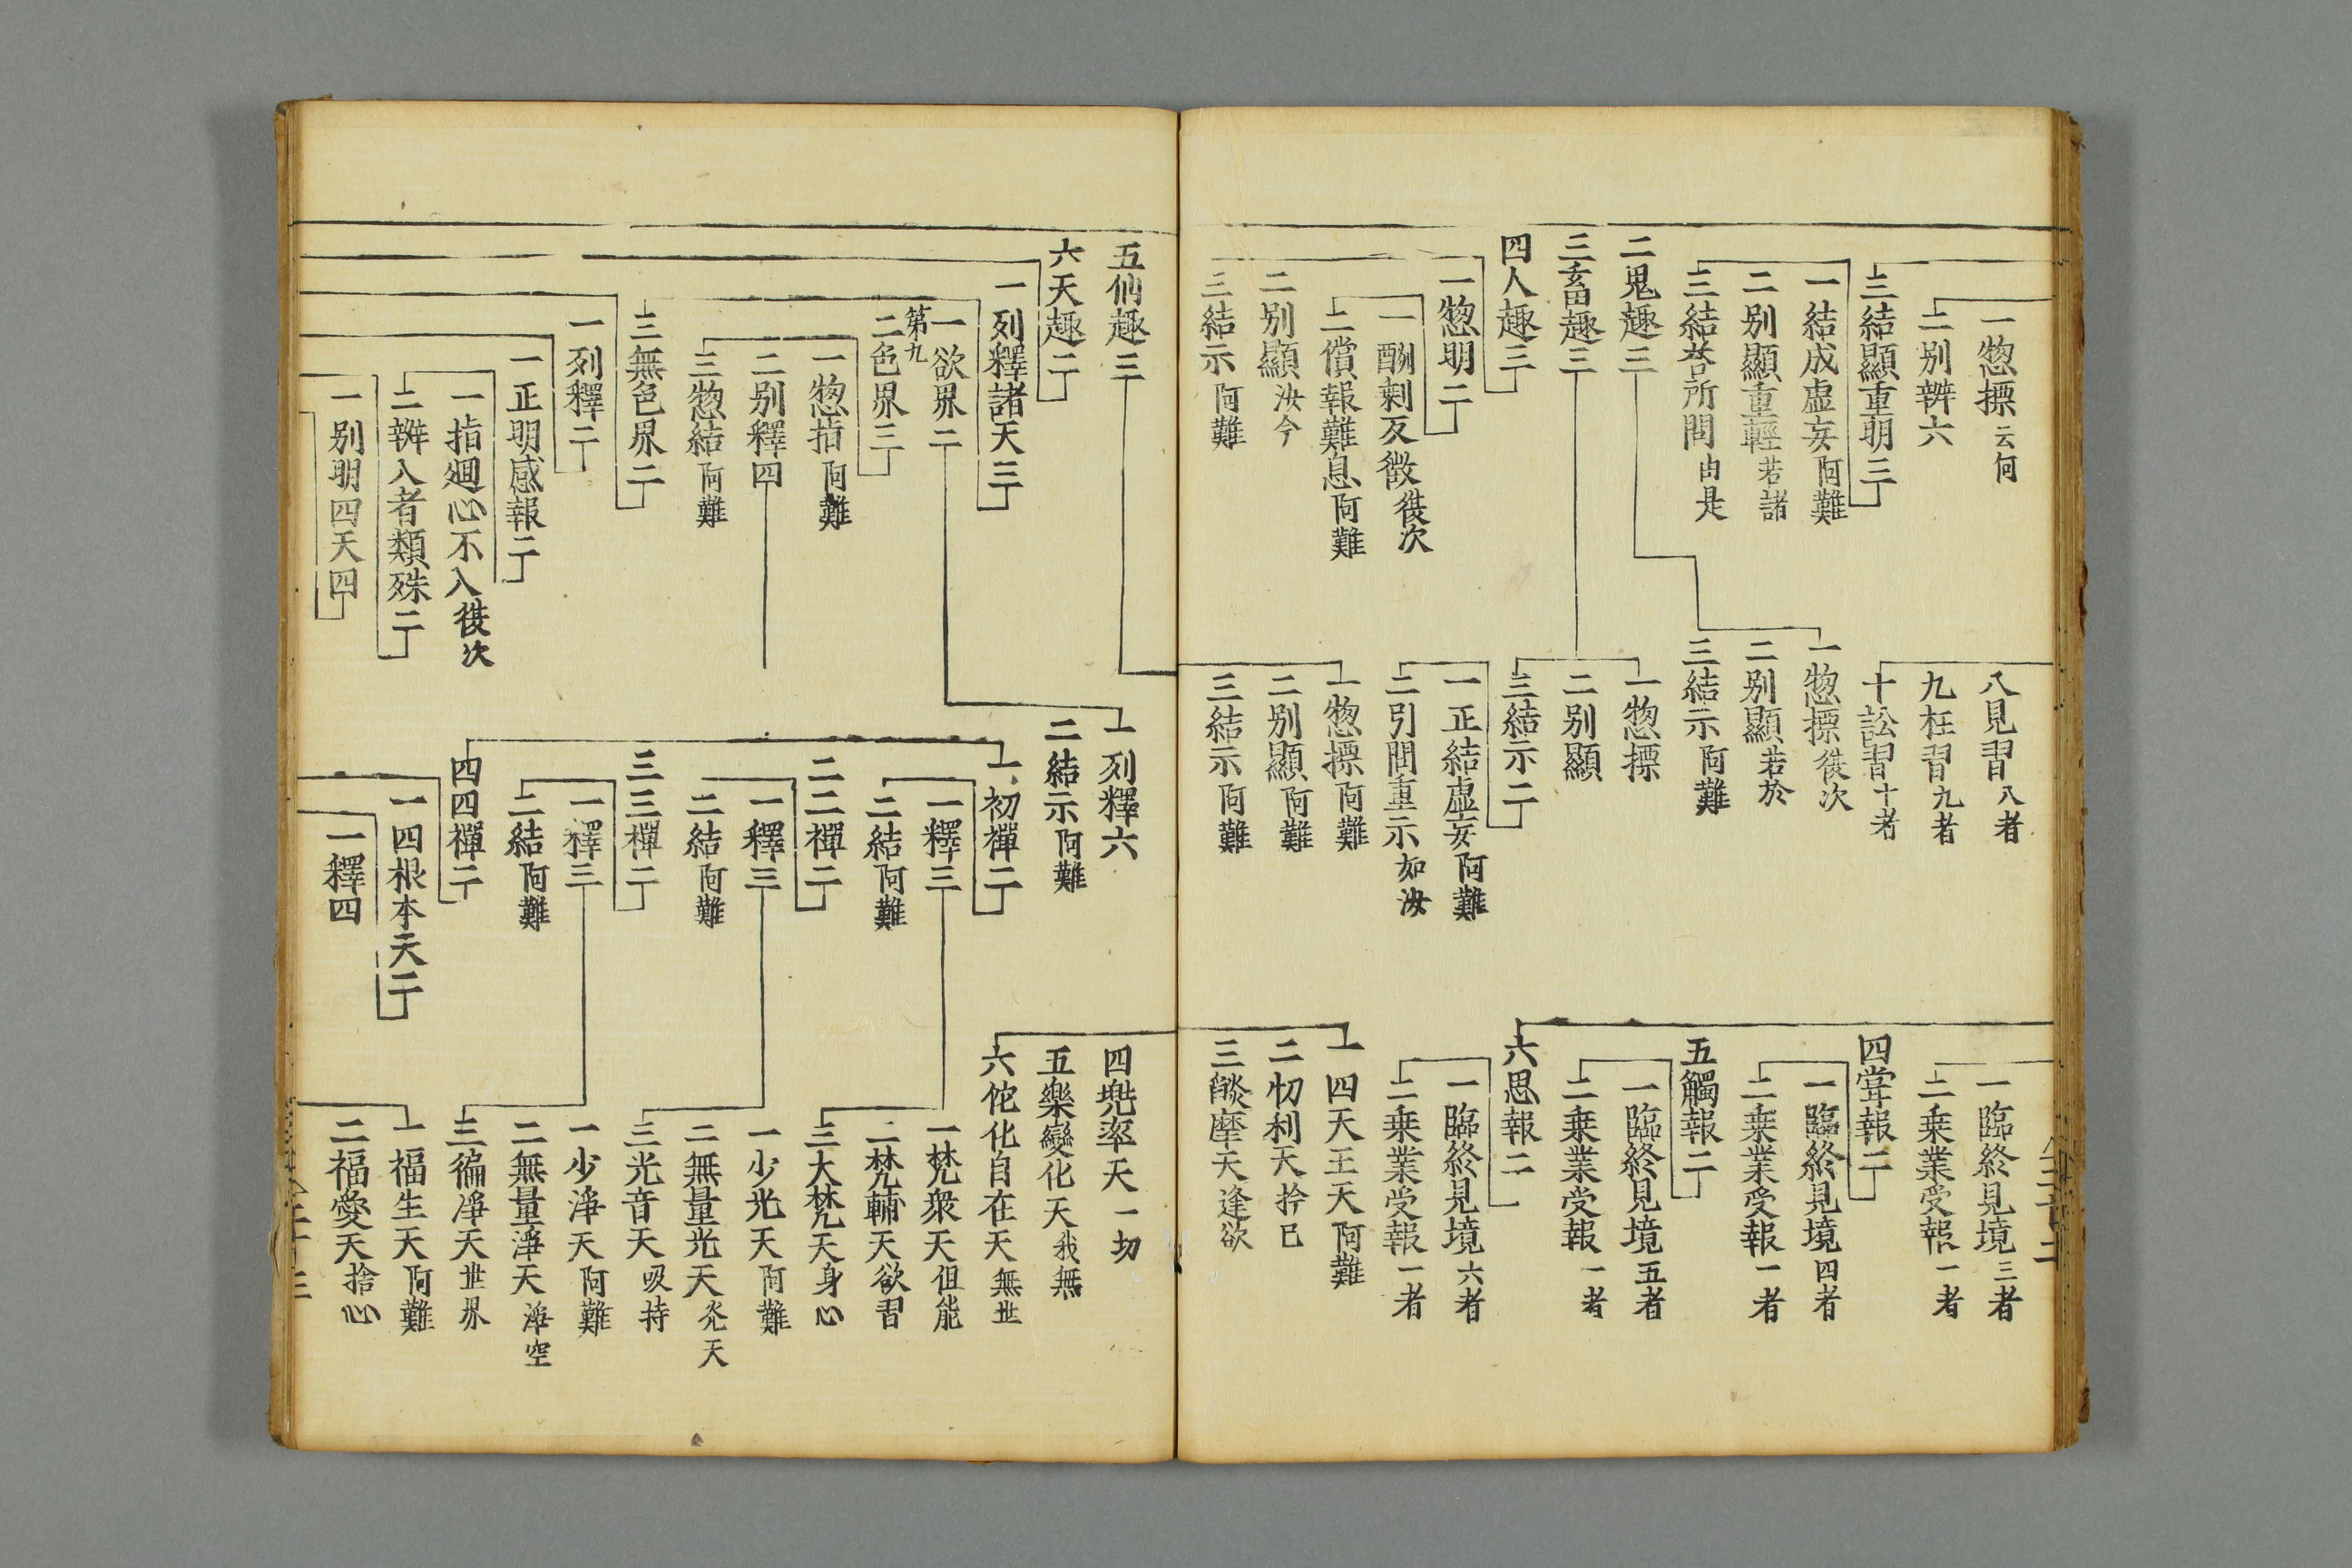 一惣摽云何
二別辨六
三結顯重明三
一結成虛妄阿難
二別顯重輕若諸
三結荅所問由是
二鬼趣三
三畜趣三
四人趣三
一惣明二
一酬剩反徵復次
二償報難息阿難
二別顯汝今
三結示阿難
八見習八者
九枉習九者
十訟習十者
一惣摽復次
二別顯若於
三結示阿難
一惣摽
二別顯
三結示二
一正結虛妄阿難
二引問重示如汝
一惣摽阿難
二別顯阿難
三結示阿難
一臨終見境三者
二乗業受報一者
四甞報二
一臨終見境四者
二乗業受報一者
五觸報二
一臨終見境五者
二乗業受報一者
六思報二
一臨終見境六者
二乗業受報一者
一四天王天阿難
二忉利天扵已
三燄摩天逢欲
五仙趣三
六天趣二
一列釋諸天三
一欲界二
第九
二色界三
一惣指阿難
二別釋四
三惣結阿難
三無色界二
一列釋二
一正明感報二
一指廻心不入復次
二辨入者類殊二
一別明四天四
一列釋六
二結示阿難
一初禪二
一釋三
二結阿難
二二禪二
一釋三
二結阿難
三三禪二
一釋三
二結阿難
四四禪二
一四根本天二
一釋四
四兠率天一切
五樂變化天我無
六佗化自在天無世
一梵衆天但能
二梵輔天欲習
三大梵天身心
一少光天阿難
二無量光天光天
三光音天吸持
一少淨天阿難
二無量淨天淨空
三徧淨天世界
一福生天阿難
二福愛天捨心